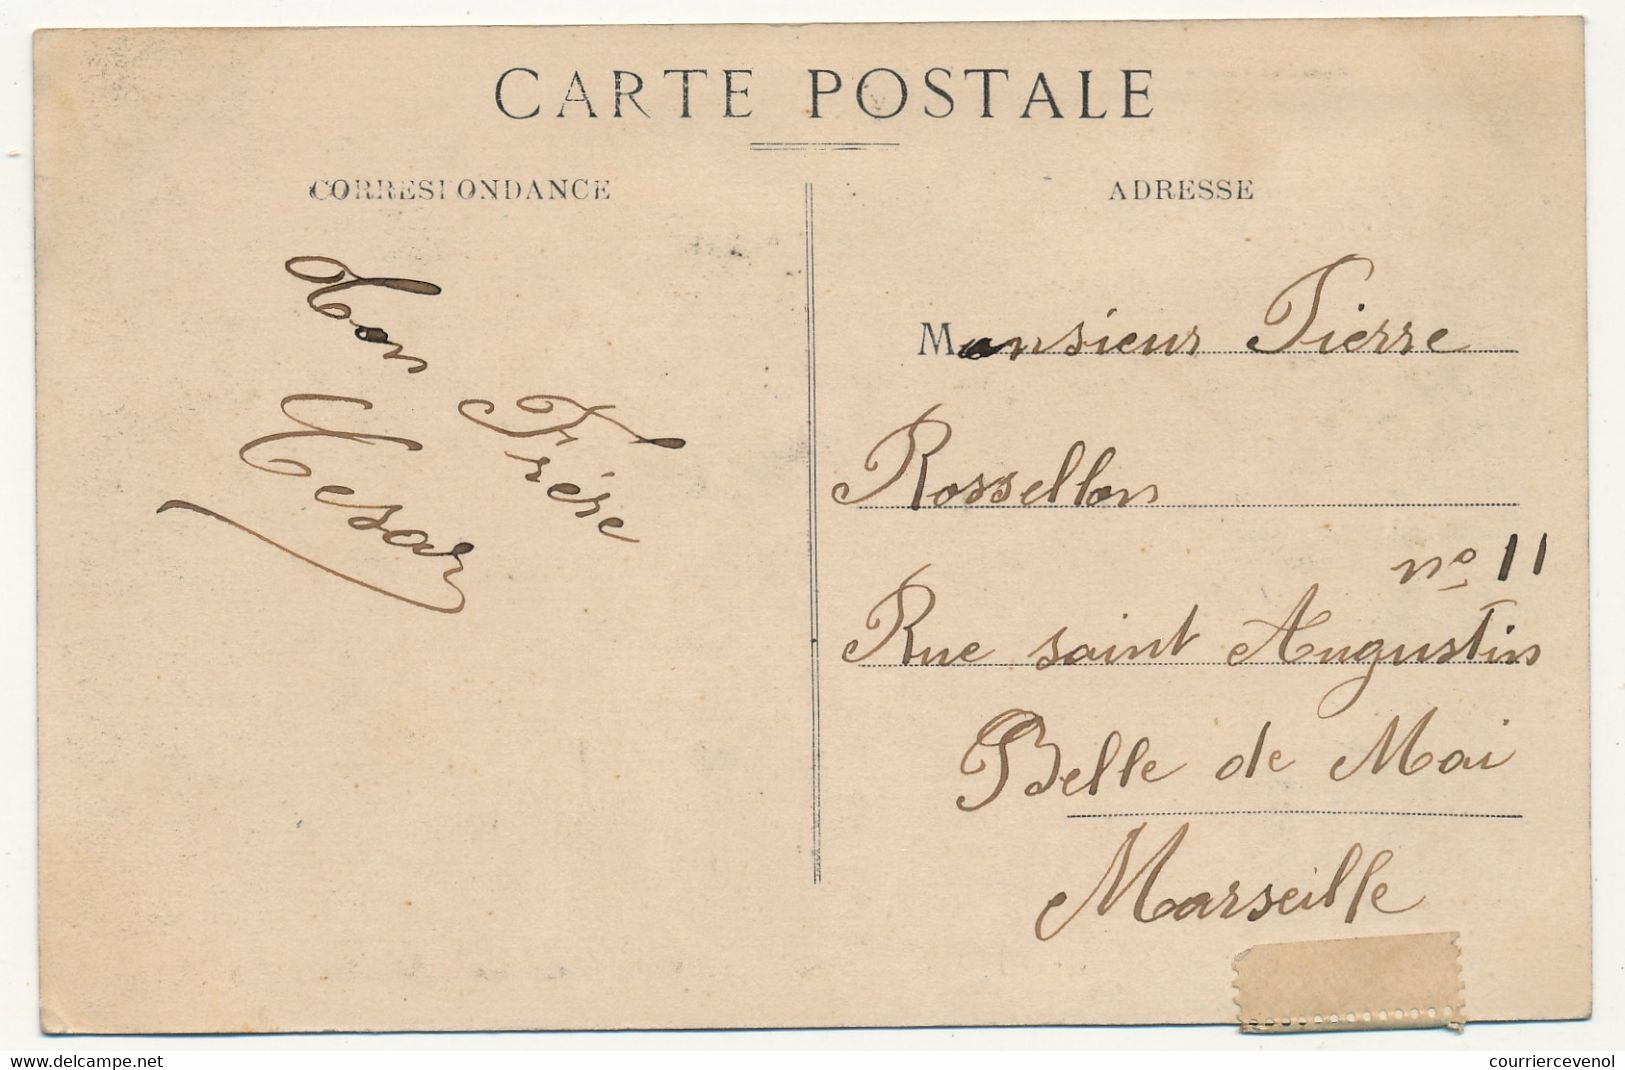 CARTE POSTALE
CORRESPONDANCE
ADRESSE
Ton
Frère
Cesar
Monsieur Pierre
Rossellon
nº 11
Rue saint Augustin
Belle de Mai
Marseille
delcampe.net
courriercevenol